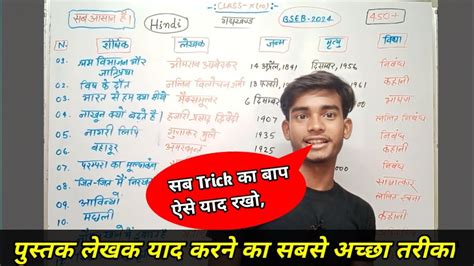 सब आसान है।
Hindi
CLASS-X(10)
गद्यखण्ड
BSEB-2024
450+
क्र० शीर्षक लेखक जन्म मृत्यु विधा
01. श्रम विभाजन और जातिप्रथा भीमराव अंबेदकर 14 अप्रैल, 1891 दिसम्बर, 1956 निबंध
02. विष के दाँत नलिन विलोचन शर्मा कहानी
03. भारत से हम क्या सीखें मैक्समूलर 6 भाषण
04. नाखून क्यों बढ़ते हैं। हजारी प्रसाद द्विवेदी 1907 ललित निबंध
05. नागरी लिपि गुणाकर मुले 1935 निबंध
06. बहादुर अमरकांत 1925 कहानी
07. परम्परा का मूल्यांकन निबंध
08. जित-जित मैं निरखत साक्षात्कार
09. आविन्यों ललित रचना
10. मछली कहानी
सब Trick का बाप
ऐसे याद रखो,
पुस्तक लेखक याद करने का सबसे अच्छा तरीका